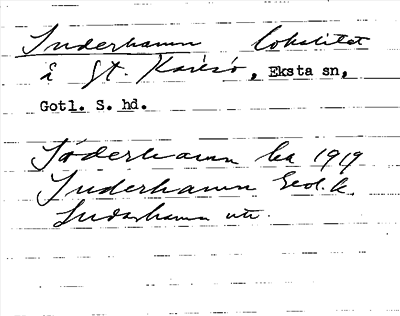 Suderhamn lokalitet
å St. Karlsö, Eksta sn,
Gotl. S. hd.
Söderhamn ka 1919
Suderhamn Geol.k.
Sudarhamn utt.